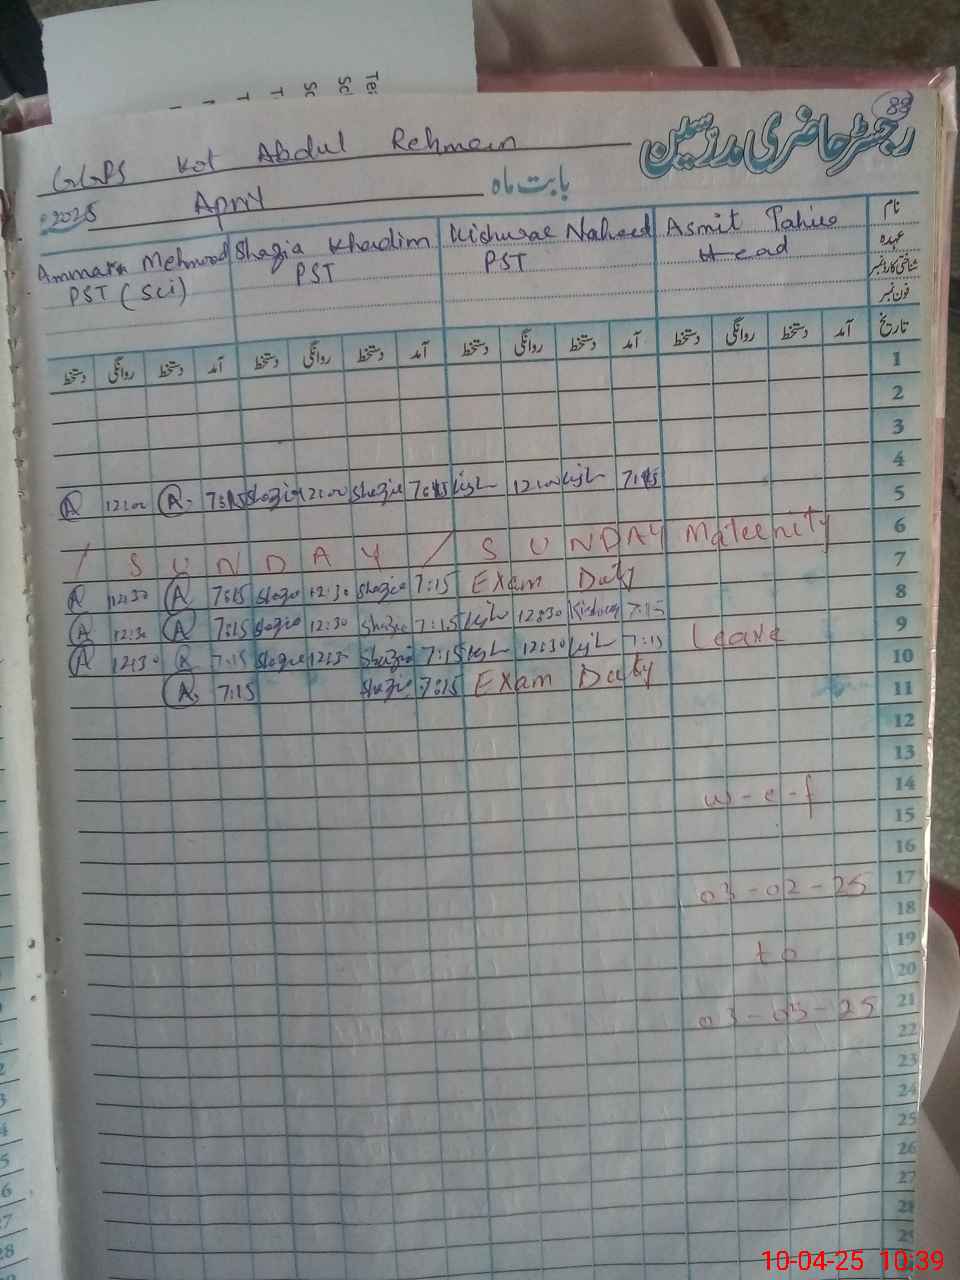 88
رجسٹر حاضری مدرسین
GGPS Kot Abdul Rehman
بابت ماہ
April
2025
نام
عہدہ
شناختی کارڈ نمبر
فون نمبر
Ammara Mehmood Shazia Khadim Kishwar Naheed Asmit
PST (Sci) PST PST Head
تاریخ آمد دستخط روانگی دستخط آمد دستخط روانگی دستخط آمد دستخط روانگی دستخط آمد دستخط روانگی دستخط
1
2
3
4
A 12:00 A. 7:15 Shazia 12:00 Shazia 7:15 12:00 7:15 5
/ S U N D A Y / S U N D A Y Maternity 6
7
A 12:30 A 7:15 Shazia 12:30 Shazia 7:15 Exam Duty 8
A 12:30 A 7:15 Shazia 12:30 Shazia 7:15 12:30 Kishwar 7:15 9
A 12:30 A 7:15 Shazia 12:30 Shazia 7:15 12:30 7:15 Leave 10
A. 7:15 Shazia 7:15 Exam Duty 11
12
13
14
w-e-f
15
16
17
03-02-25
18
19
to
20
21
03-03-25
22
23
24
25
26
27
28
29
10-04-25 10:39